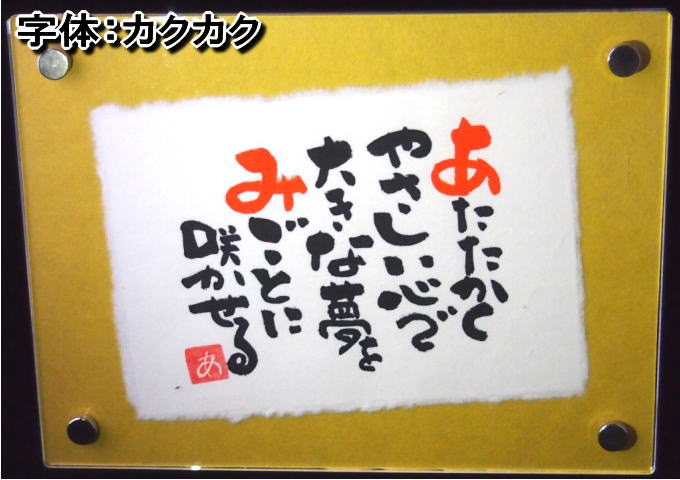 字体：カクカク
あたたかく
やさしい心で
大きな夢を
みごとに
咲かせる
あ